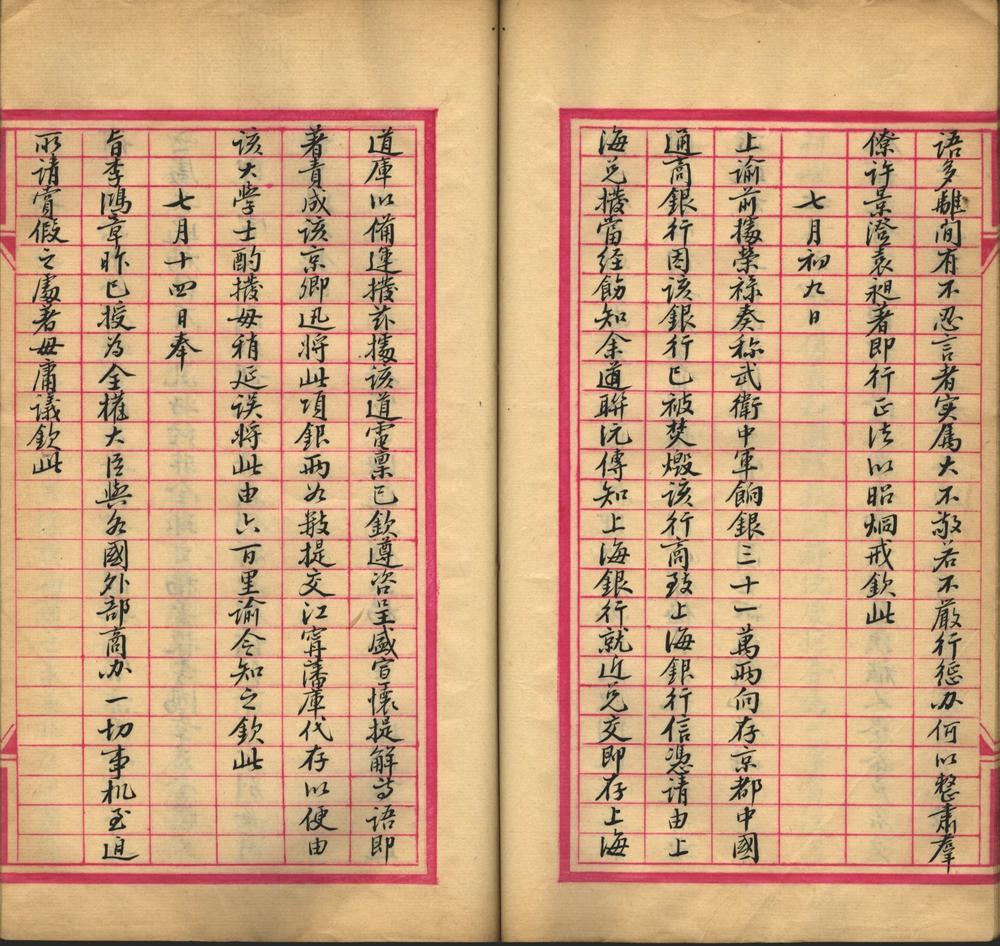 語多離間有不忍言者实属大不敬若不严行惩办何以整肅羣
僚许景澄袁昶著即行正法以昭炯戒欽此
七月初九日
上谕前據榮禄奏称武衛中軍餉銀三十一萬两向存京都中國
通商銀行因该銀行已被焚燬该行商致上海銀行信憑请由上
海兑撥當经飭知余道聯沅傳知上海銀行就近兑交即存上海
道庫以備運撥兹據该道電禀已欽遵咨呈盛宣懷提解等语即
著責成该京卿迅将此項銀两如数提交江寗藩庫代存以便由
该大学士酌撥毋稍延误将此由六百里谕令知之欽此
七月十四日奉
旨李鴻章昨已授为全權大臣與各國外部商办一切事机至迫
所请賞假之處著毋庸議欽此